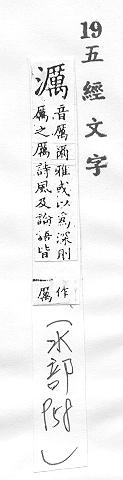 19五經文字
濿
音厲爾雅或以爲深則
厲之厲詩風及論語皆
作
厲
(水部P58)